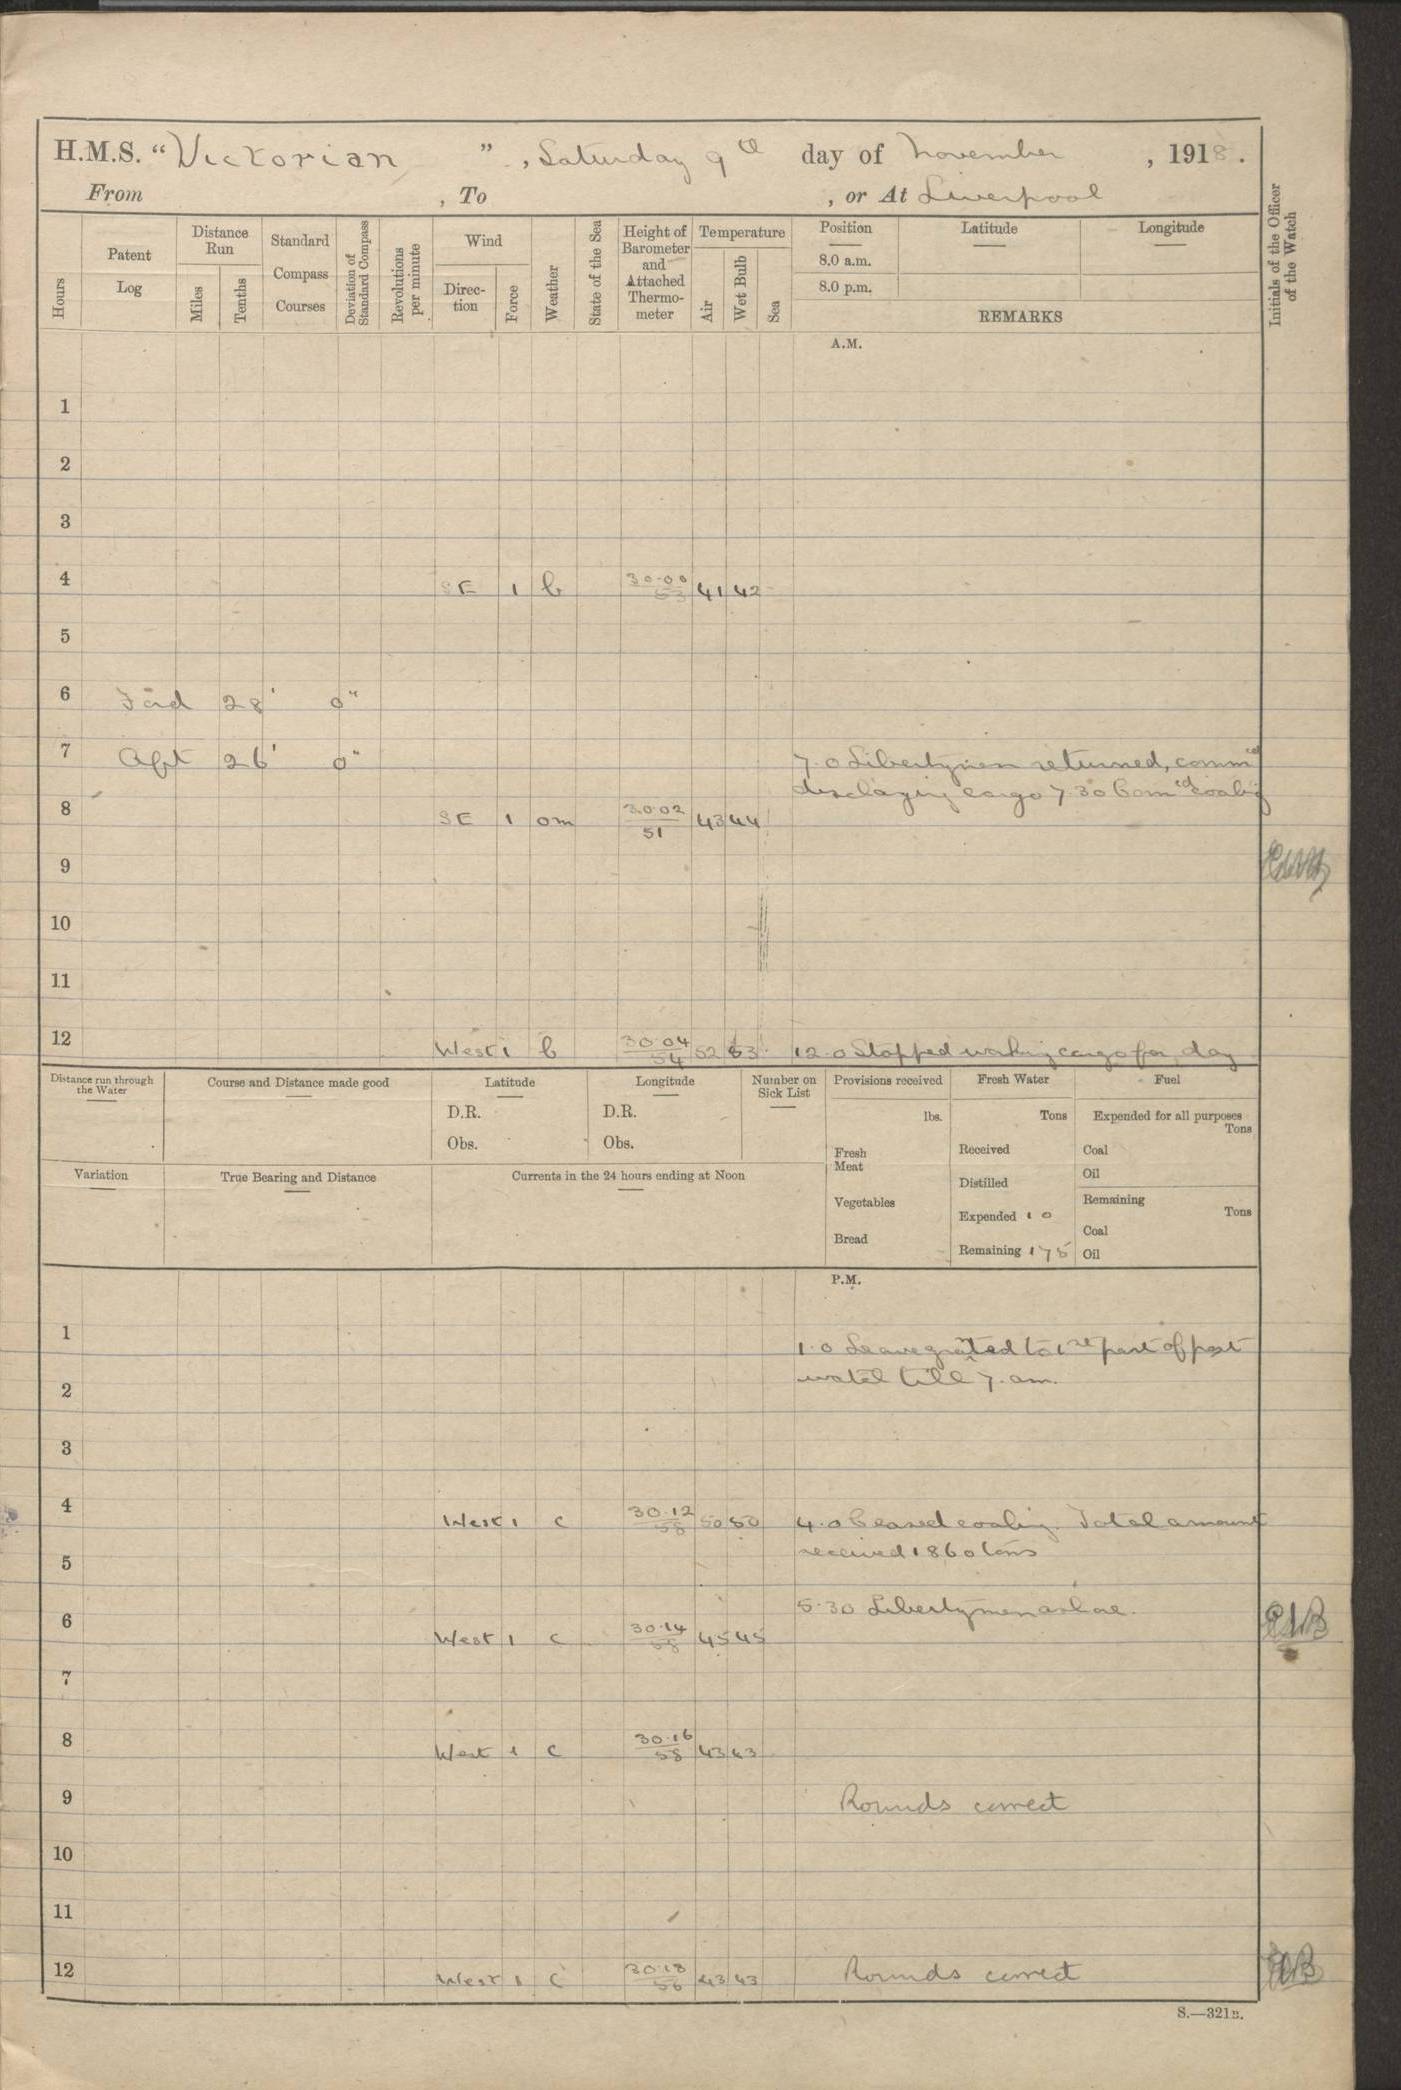 H.M.S. “Victorian”, Saturday 9th day of November, 1918.
From , To , or At Liverpool
Hours
Patent Log
Distance Run
Miles
Tenths
Standard Compass Courses
Deviation of Standard Compass
Revolutions per minute
Wind
Direc-tion
Force
Weather
State of the Sea
Height of Barometer and Attached Thermo-meter
Temperature
Air
Wet Bulb
Sea
Position
8.0 a.m.
8.0 p.m.
Latitude
Longitude
REMARKS
Initials of the Officer of the Watch
A.M.
1
2
3
4 SE 1 b 30.00 53 41 42
5
6 For'd 28' 0"
7 Aft 26' 0" 7.0 Libertymen returned, comm'cd
discharging cargo 7.30 Comm'cd coaling
8 SE 1 om 30.02 51 43 44
9
10
11
12 West 1 b 30.04 54 52 53 12.0 Stopped working cargo for day
Distance run through the Water
Course and Distance made good
Latitude
D.R.
Obs.
Longitude
D.R.
Obs.
Number on Sick List
Provisions received
lbs.
Fresh Meat
Vegetables
Bread
Fresh Water
Tons
Received
Distilled
Expended 10
Remaining 175
Fuel
Expended for all purposes
Tons
Coal
Oil
Remaining
Tons
Coal
Oil
Variation
True Bearing and Distance
Currents in the 24 hours ending at Noon
P.M.
1 1.0 Leave granted to 1st part of port
watch till 7. am.
2
3
4 West 1 c 30.12 58 50 50 4.0 Ceased coaling. Total amount
received 1860 tons
5
5.30 Libertymen ashore.
6 West 1 c 30.14 58 45 45
7
8 West 1 c 30.16 58 43 43
9 Rounds correct
10
11
12 West 1 c 30.18 56 43 43 Rounds correct
S.—321B.